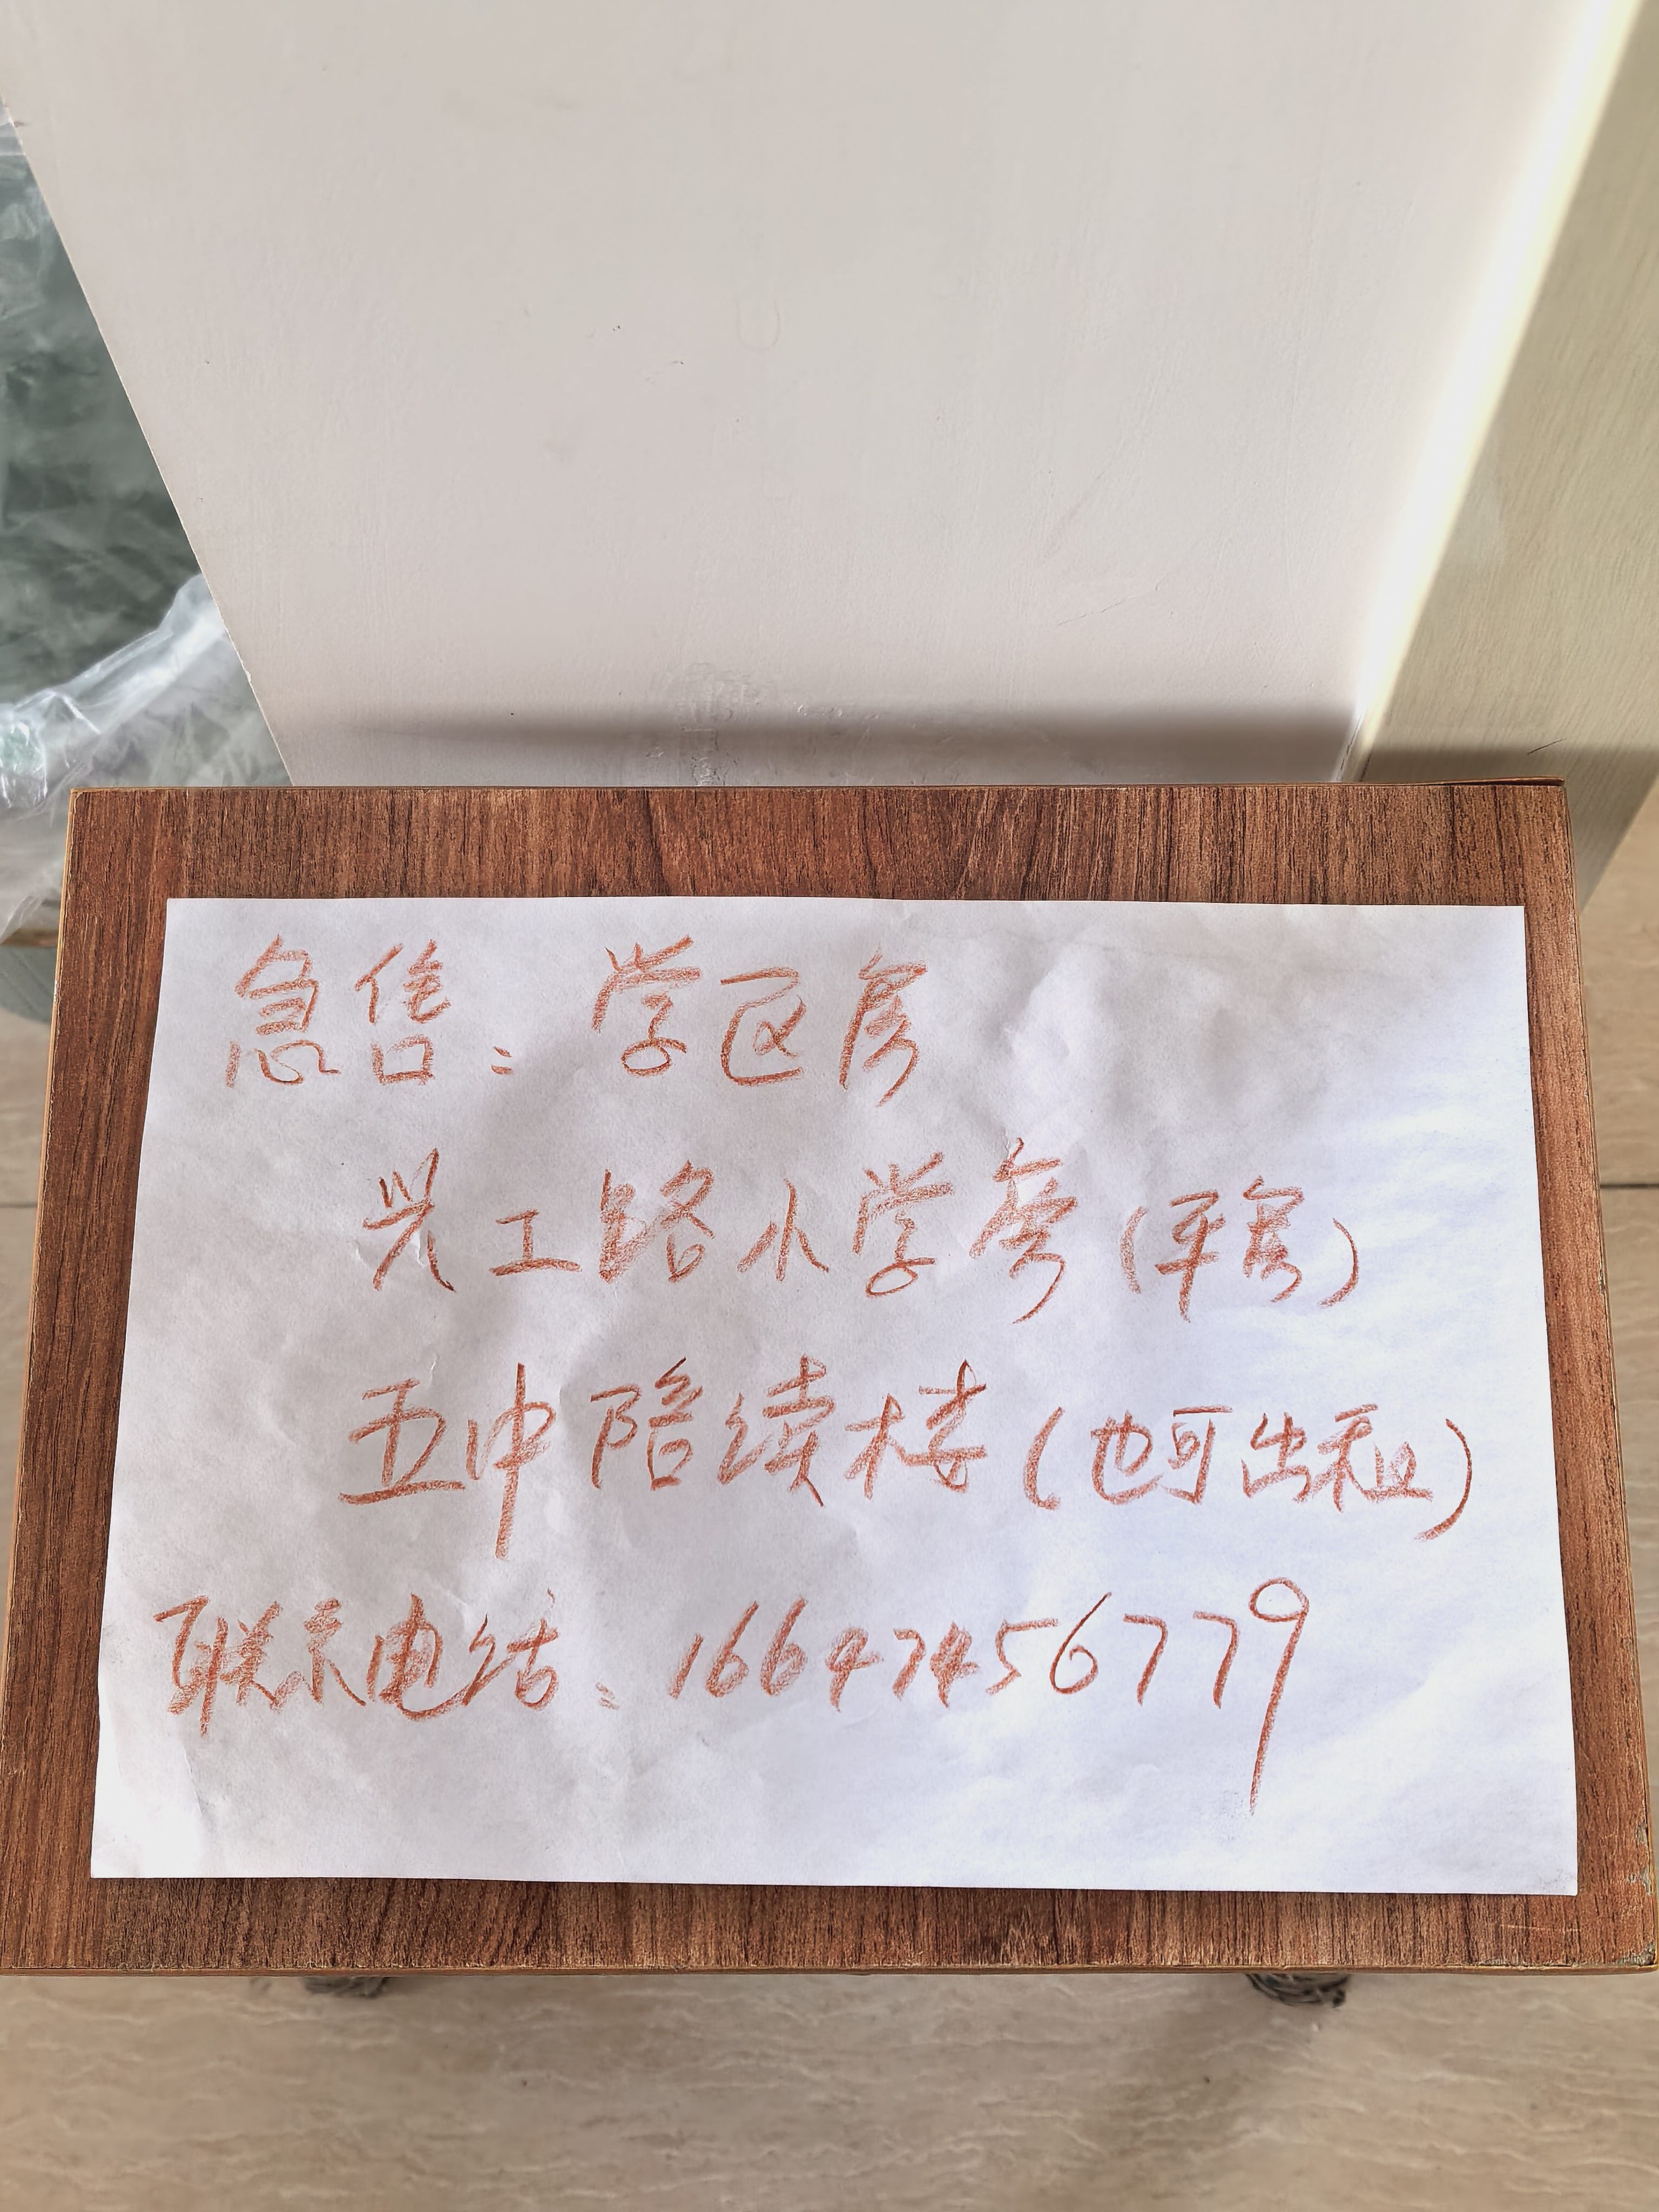 急售：学区房
兴工路小学旁（平房）
五中陪续楼（也可出租）
联系电话：16647456779